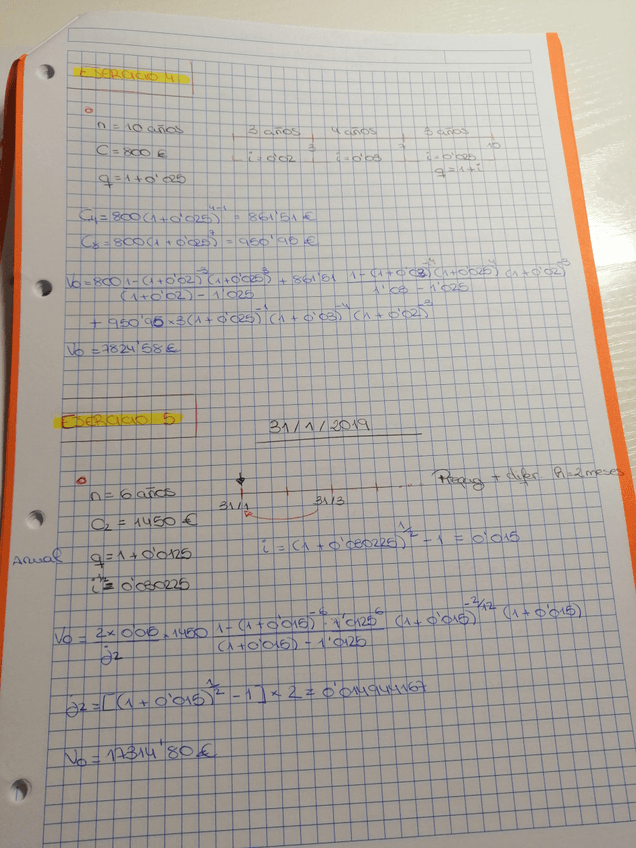 EJERCICIO 4
n = 10 años 3 años 4 años 3 años
C = 800 € i = 0'02 3 i = 0'03 7 i = 0'025 10
q = 1 + 0'025 q = 1 + i
C4 = 800(1+0'025)^4-1 = 861'51 €
C8 = 800(1+0'025)^7 = 950'95 €
V0 = 800 1-(1+0'02)^-3 (1+0'025)^3 / (1+0'02) - 1'025 + 861'51 1-(1+0'03)^-4 (1+0'025)^4 / 1'03 - 1'025 (1+0'02)^-3
+ 950'95 × 3(1+0'025)^-1 (1+0'03)^-4 (1+0'02)^-3
V0 = 7824'58 €
EJERCICIO 5 31/1/2019
n = 6 años 31/1 31/3 + difer. 2 meses
C2 = 1450 €
Anual q = 1 + 0'0125 i = (1+0'030225)^1/2 - 1 = 0'015
0'030225
V0 = 2×0'015 / j2 · 1450 1-(1+0'015)^-6 · 1'0125^6 / (1+0'015) - 1'0125 (1+0'015)^-2/12 (1+0'015)
j2 = [(1+0'015)^1/2 - 1] × 2 = 0'014944167
V0 = 17314'80 €